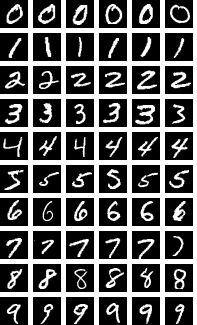 0 0 0 0 0 0
1 1 1 1 1 1
2 2 2 2 2 2
3 3 3 3 3 3
4 4 4 4 4 4
5 5 5 5 5 5
6 6 6 6 6 6
7 7 7 7 7 7
8 8 8 8 8 8
9 9 9 9 9 9